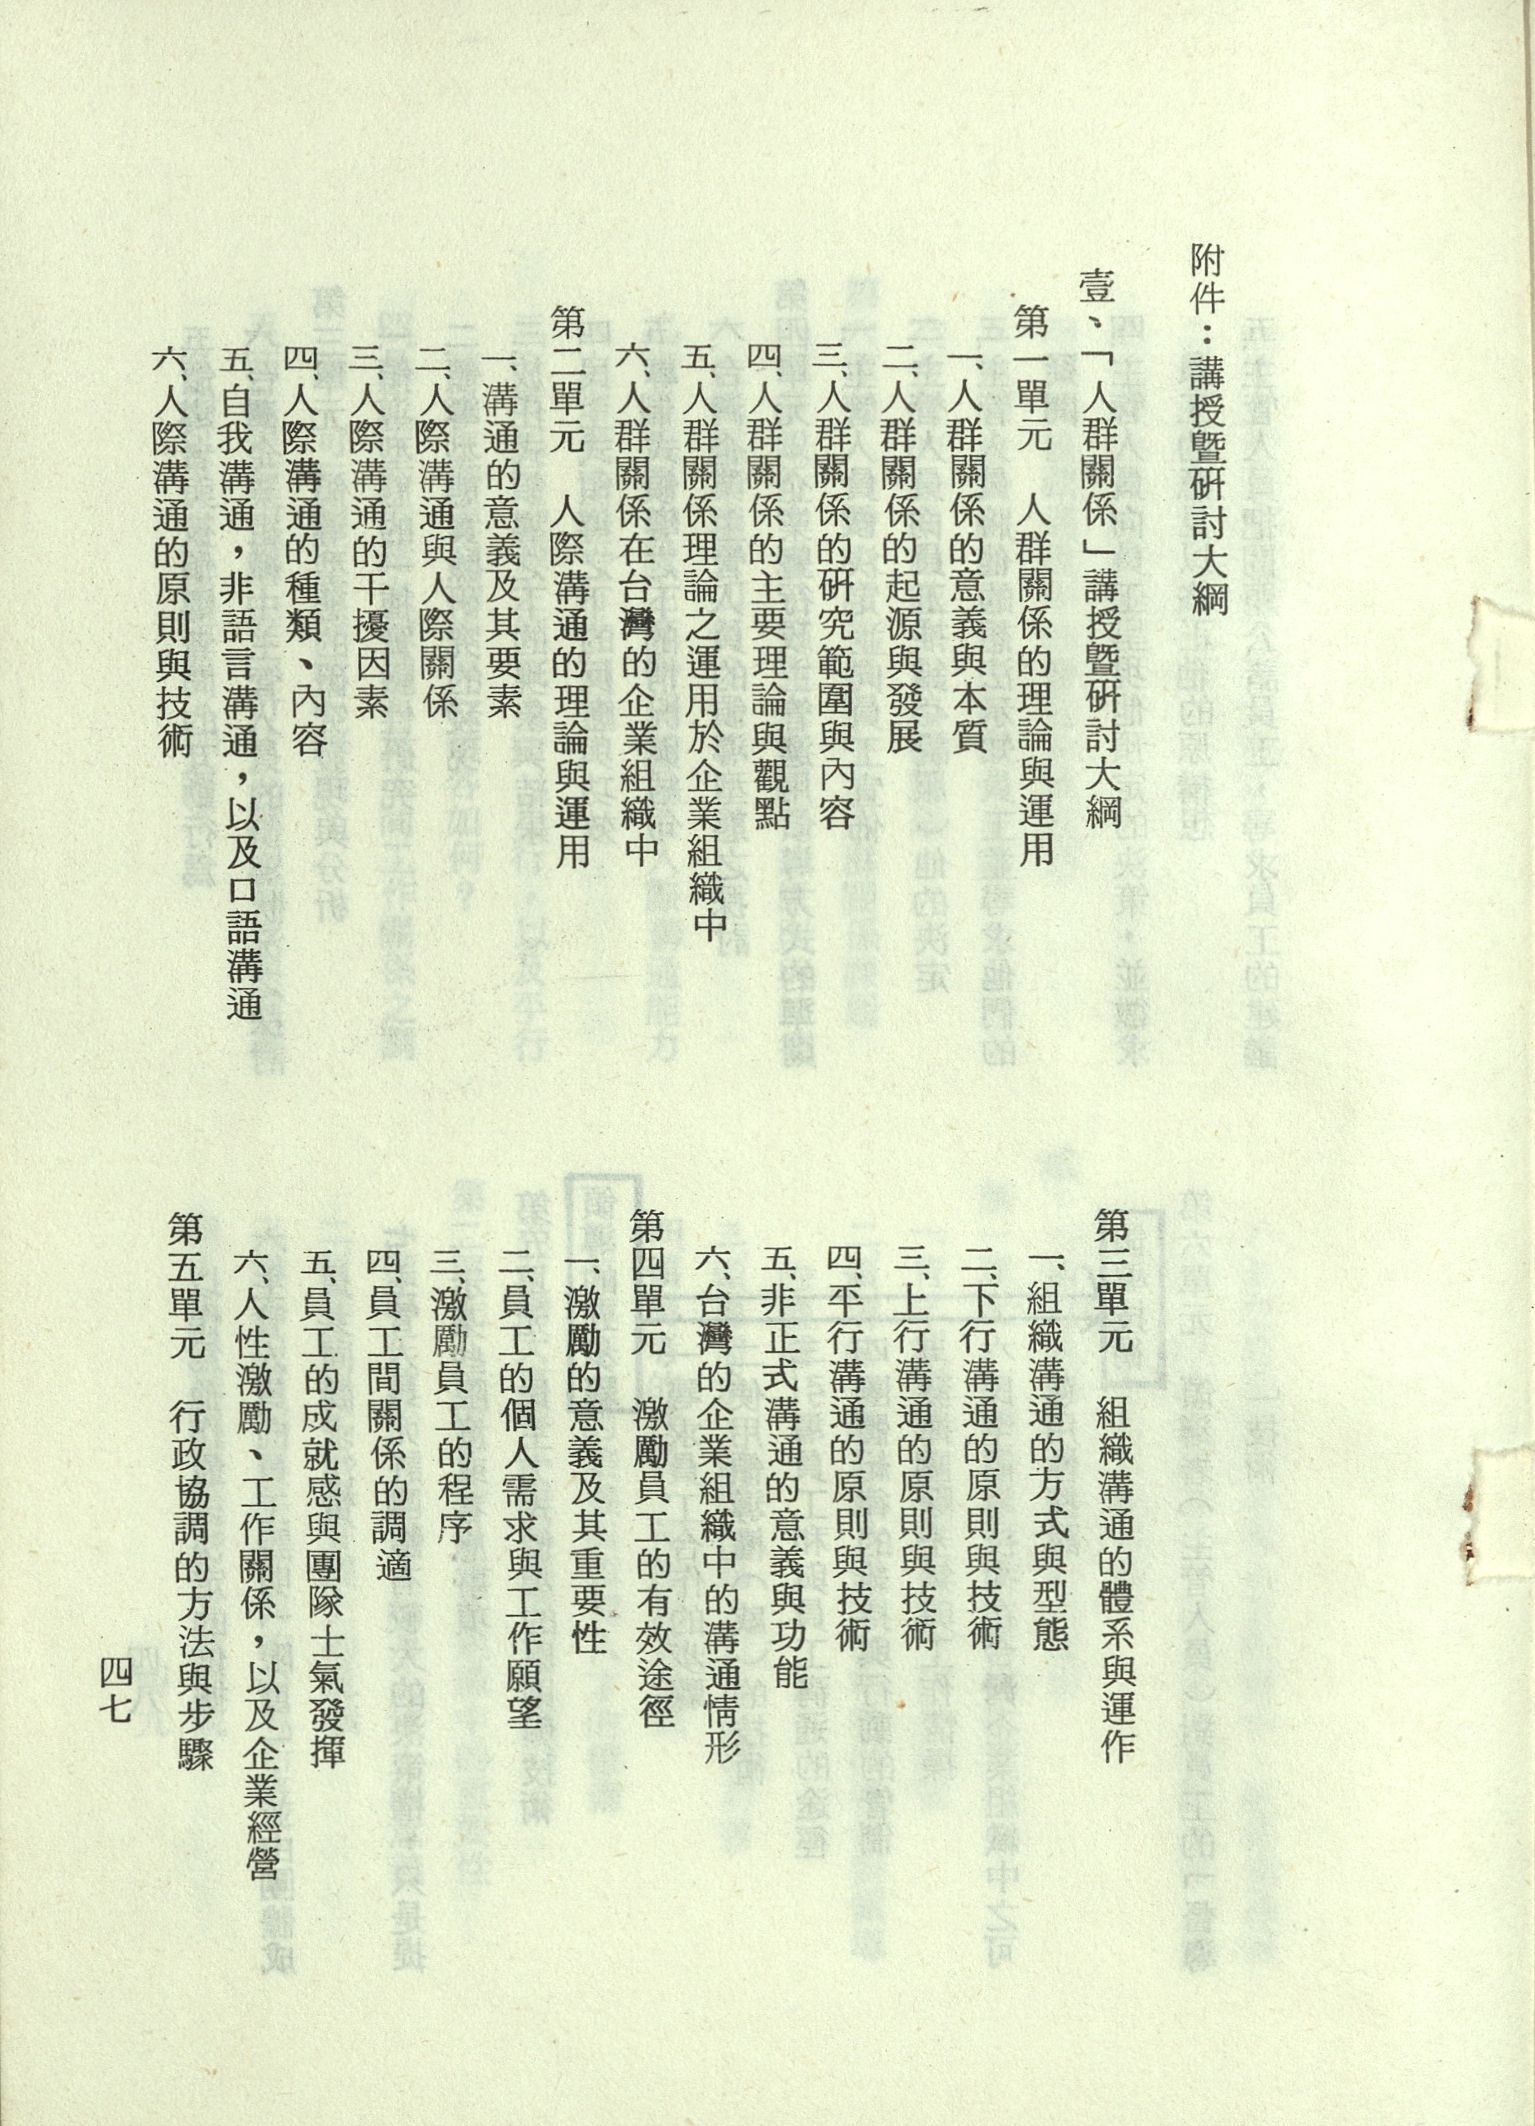 附件：講授暨研討大綱
壹、「人群關係」講授暨研討大綱
第一單元　人群關係的理論與運用
一、人群關係的意義與本質
二、人群關係的起源與發展
三、人群關係的研究範圍與內容
四、人群關係的主要理論與觀點
五、人群關係理論之運用於企業組織中
六、人群關係在台灣的企業組織中
第二單元　人際溝通的理論與運用
一、溝通的意義及其要素
二、人際溝通與人際關係
三、人際溝通的干擾因素
四、人際溝通的種類、內容
五、自我溝通，非語言溝通，以及口語溝通
六、人際溝通的原則與技術
第三單元　組織溝通的體系與運作
一、組織溝通的方式與型態
二、下行溝通的原則與技術
三、上行溝通的原則與技術
四、平行溝通的原則與技術
五、非正式溝通的意義與功能
六、台灣的企業組織中的溝通情形
第四單元　激勵員工的有效途徑
一、激勵的意義及其重要性
二、員工的個人需求與工作願望
三、激勵員工的程序
四、員工間關係的調適
五、員工的成就感與團隊士氣發揮
六、人性激勵、工作關係，以及企業經營
第五單元　行政協調的方法與步驟
四七